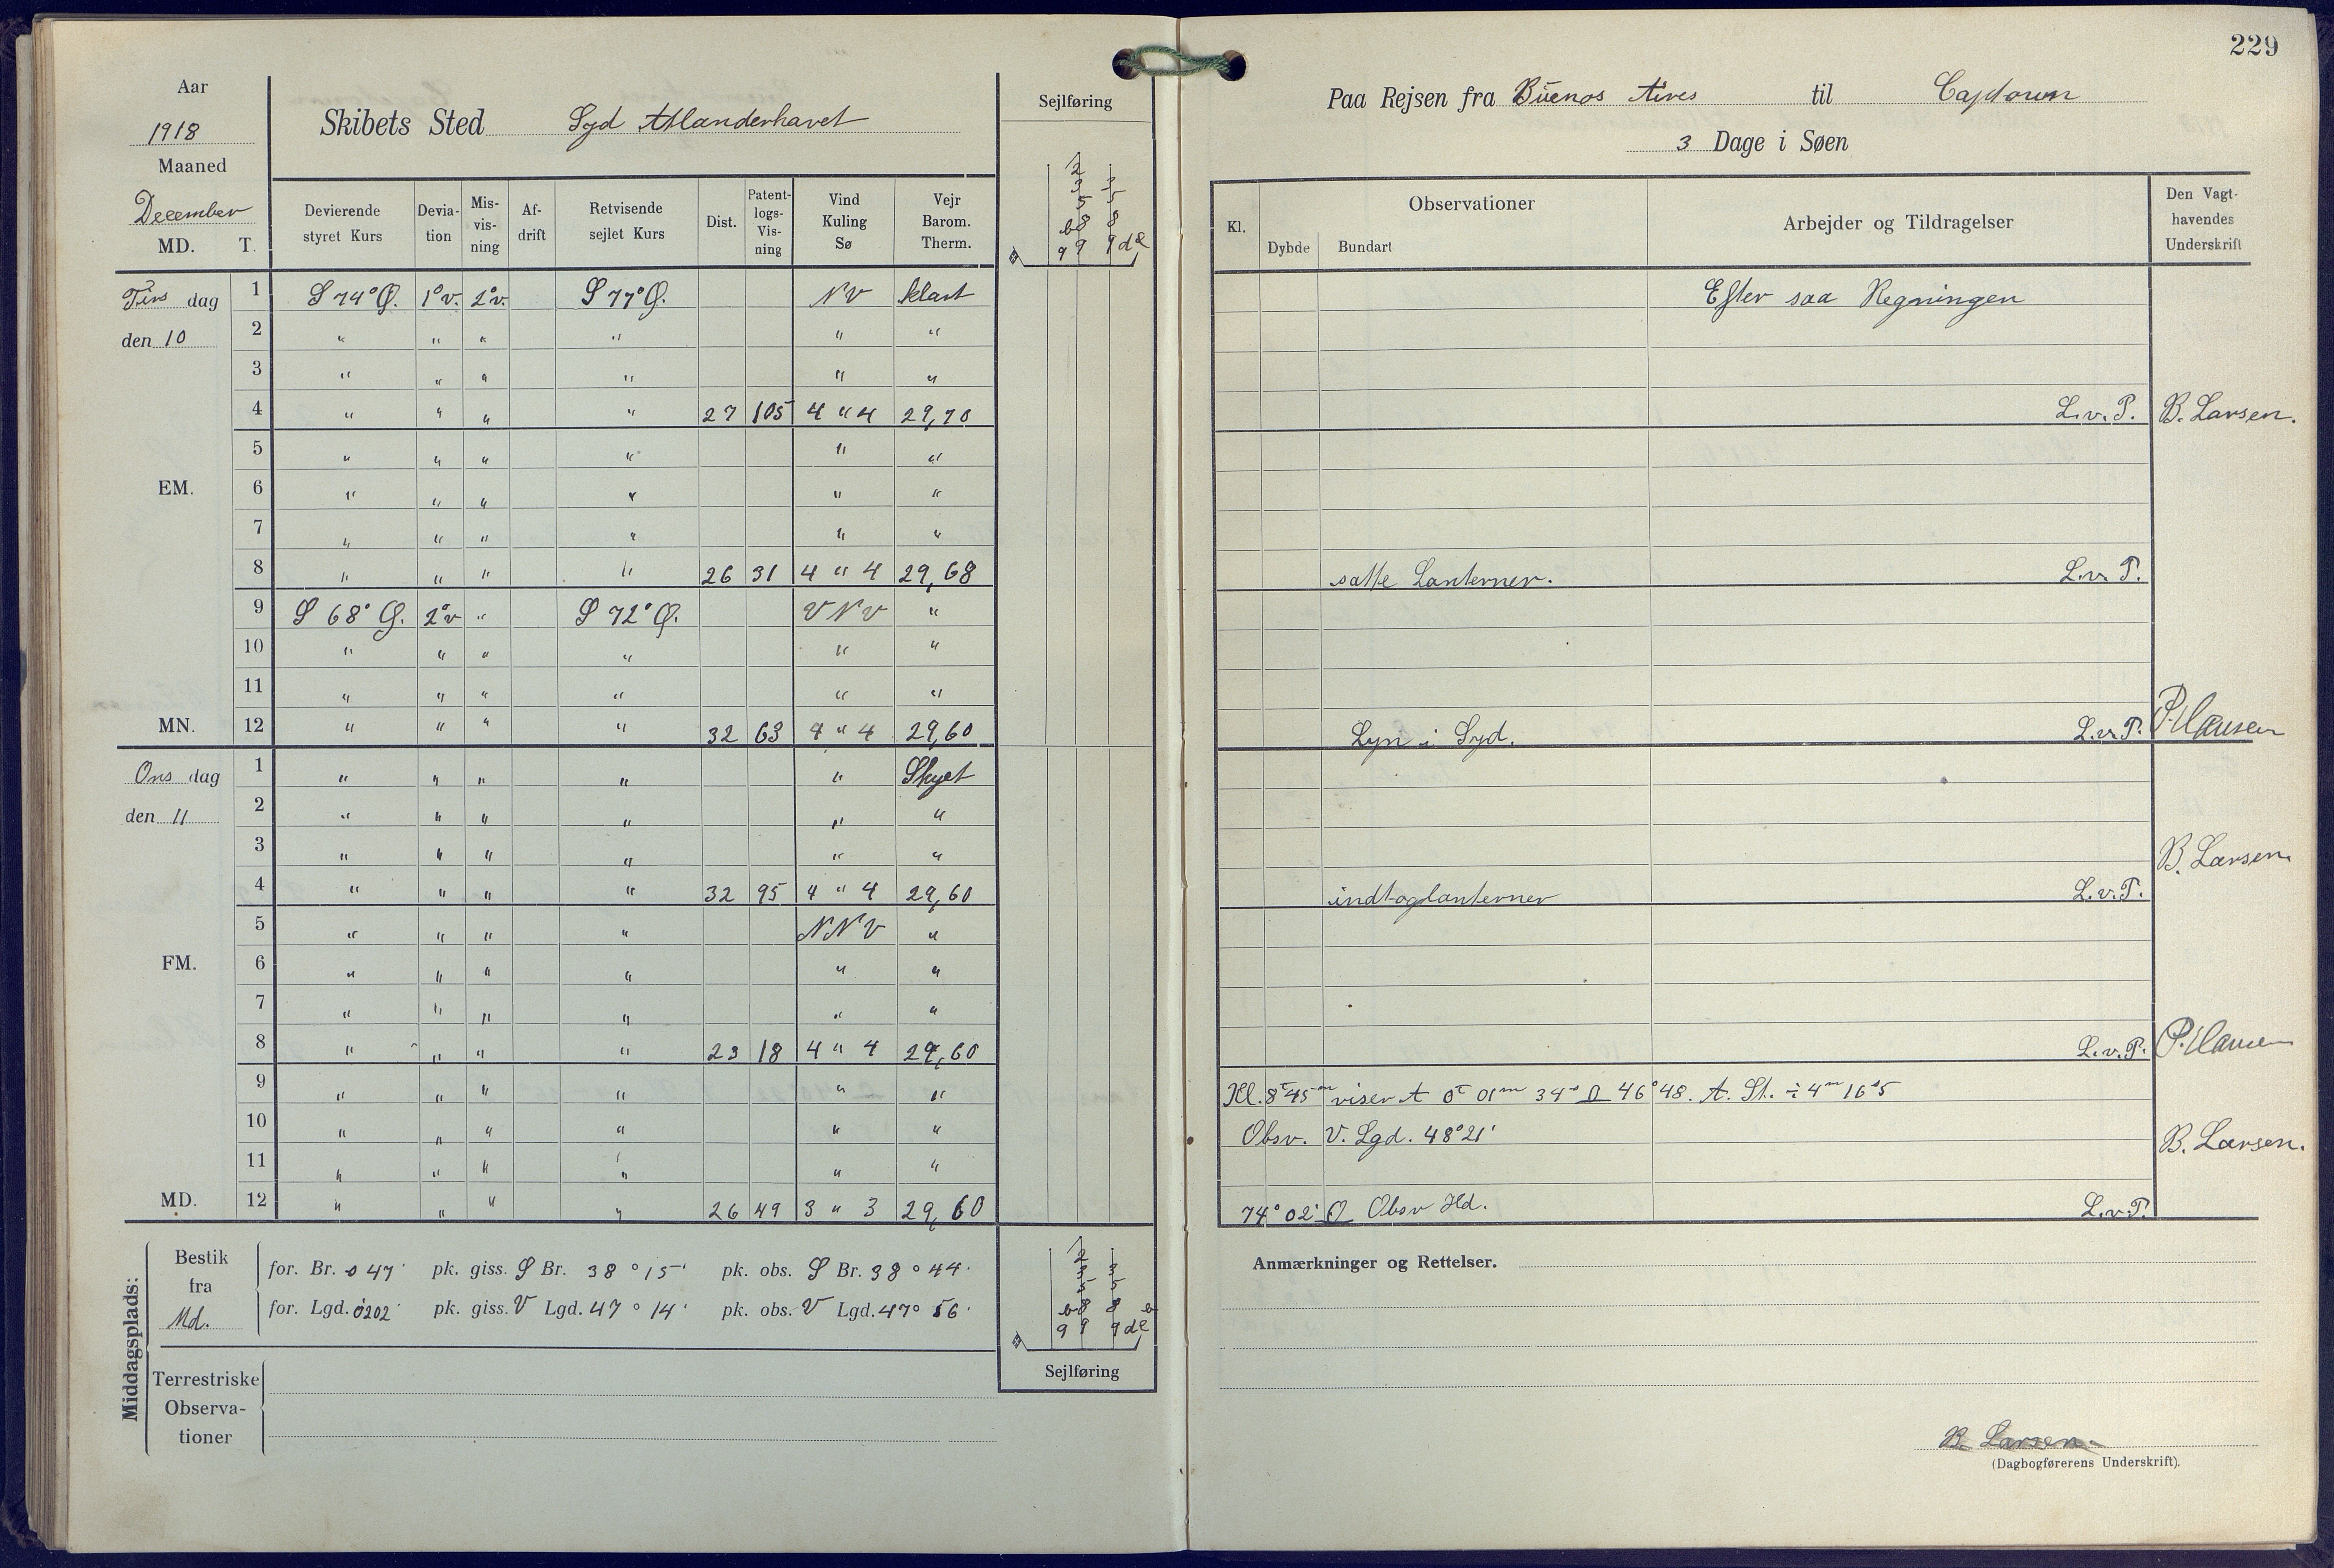 Aar
1918
Maaned
December
MD. T.
Skibets Sted Syd Atlanderhavet
Sejlføring
Devierende styret Kurs
Deviation
Misvisning
Afdrift
Retvisende sejlet Kurs
Dist.
Patentlogs-Visning
Vind Kuling Sø
Vejr Barom. Therm.
Tirsdag 1 S 74° Ø. 1° v. 2° v. S 77° Ø. NV klart
den 10 2 " " " " " "
3 " " " " " "
4 " " " " 27 105 4 " 4 29,70
5 " " " " " "
EM. 6 " " " " " "
7 " " " " " "
8 " " " " 26 31 4 " 4 29,68
9 S 68° Ø. 2° v " S 72° Ø. VNV "
10 " " " " " "
11 " " " " " "
MN. 12 " " " " 32 63 4 " 4 29,60
Onsdag 1 " " " " " Skyet
den 11 2 " " " " " "
3 " " " " " "
4 " " " " 32 95 4 " 4 29,60
5 " " " " NNV "
FM. 6 " " " " " "
7 " " " " " "
8 " " " " 23 18 4 " 4 29,60
9 " " " " " "
10 " " " " " "
11 " " " " " "
MD. 12 " " " " 26 49 3 " 3 29,60
Middagsplads:
Bestik fra Md.
for. Br. s 47' pk. giss. S Br. 38° 15' pk. obs. S Br. 38° 44'
for. Lgd. ö 202' pk. giss. V Lgd. 47° 14' pk. obs. V Lgd. 47° 56'
Terrestriske Observationer
Sejlføring
229
Paa Rejsen fra Buenos Aires til Capdown
3 Dage i Søen
Kl.
Observationer
Dybde Bundart
Arbejder og Tildragelser
Den Vagthavendes Underskrift
Efter saa Regningen
L.v.P. B. Larsen.
satte Lanterner. L.v.P.
Lyn i Syd. L.v.P. P. Hansen
B. Larsen
indtoglanterner L.v.P.
L.v.P. P. Hansen
Kl. 8 45m viser A 0 01m 34s O 46° 48. A. St. ÷ 4m 16s5
Obsv. V. Lgd. 48° 21'
B. Larsen.
74° 02' O Obsv Hd. L.v.P.
Anmærkninger og Rettelser.
B. Larsen
(Dagbogførerens Underskrift).